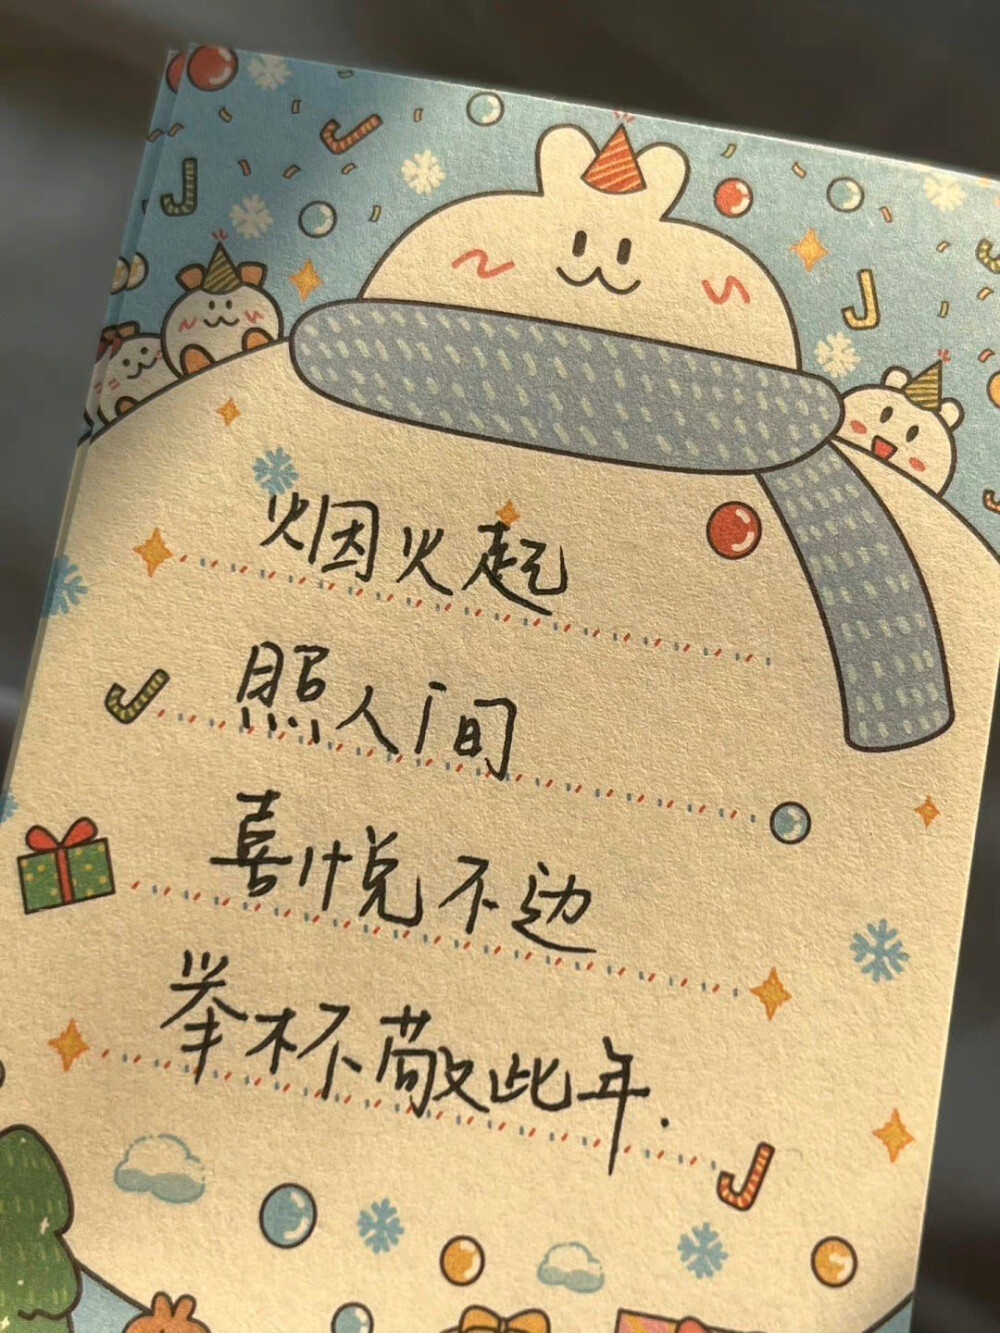 烟火起
照人间
喜悦不边
举杯敬此年.